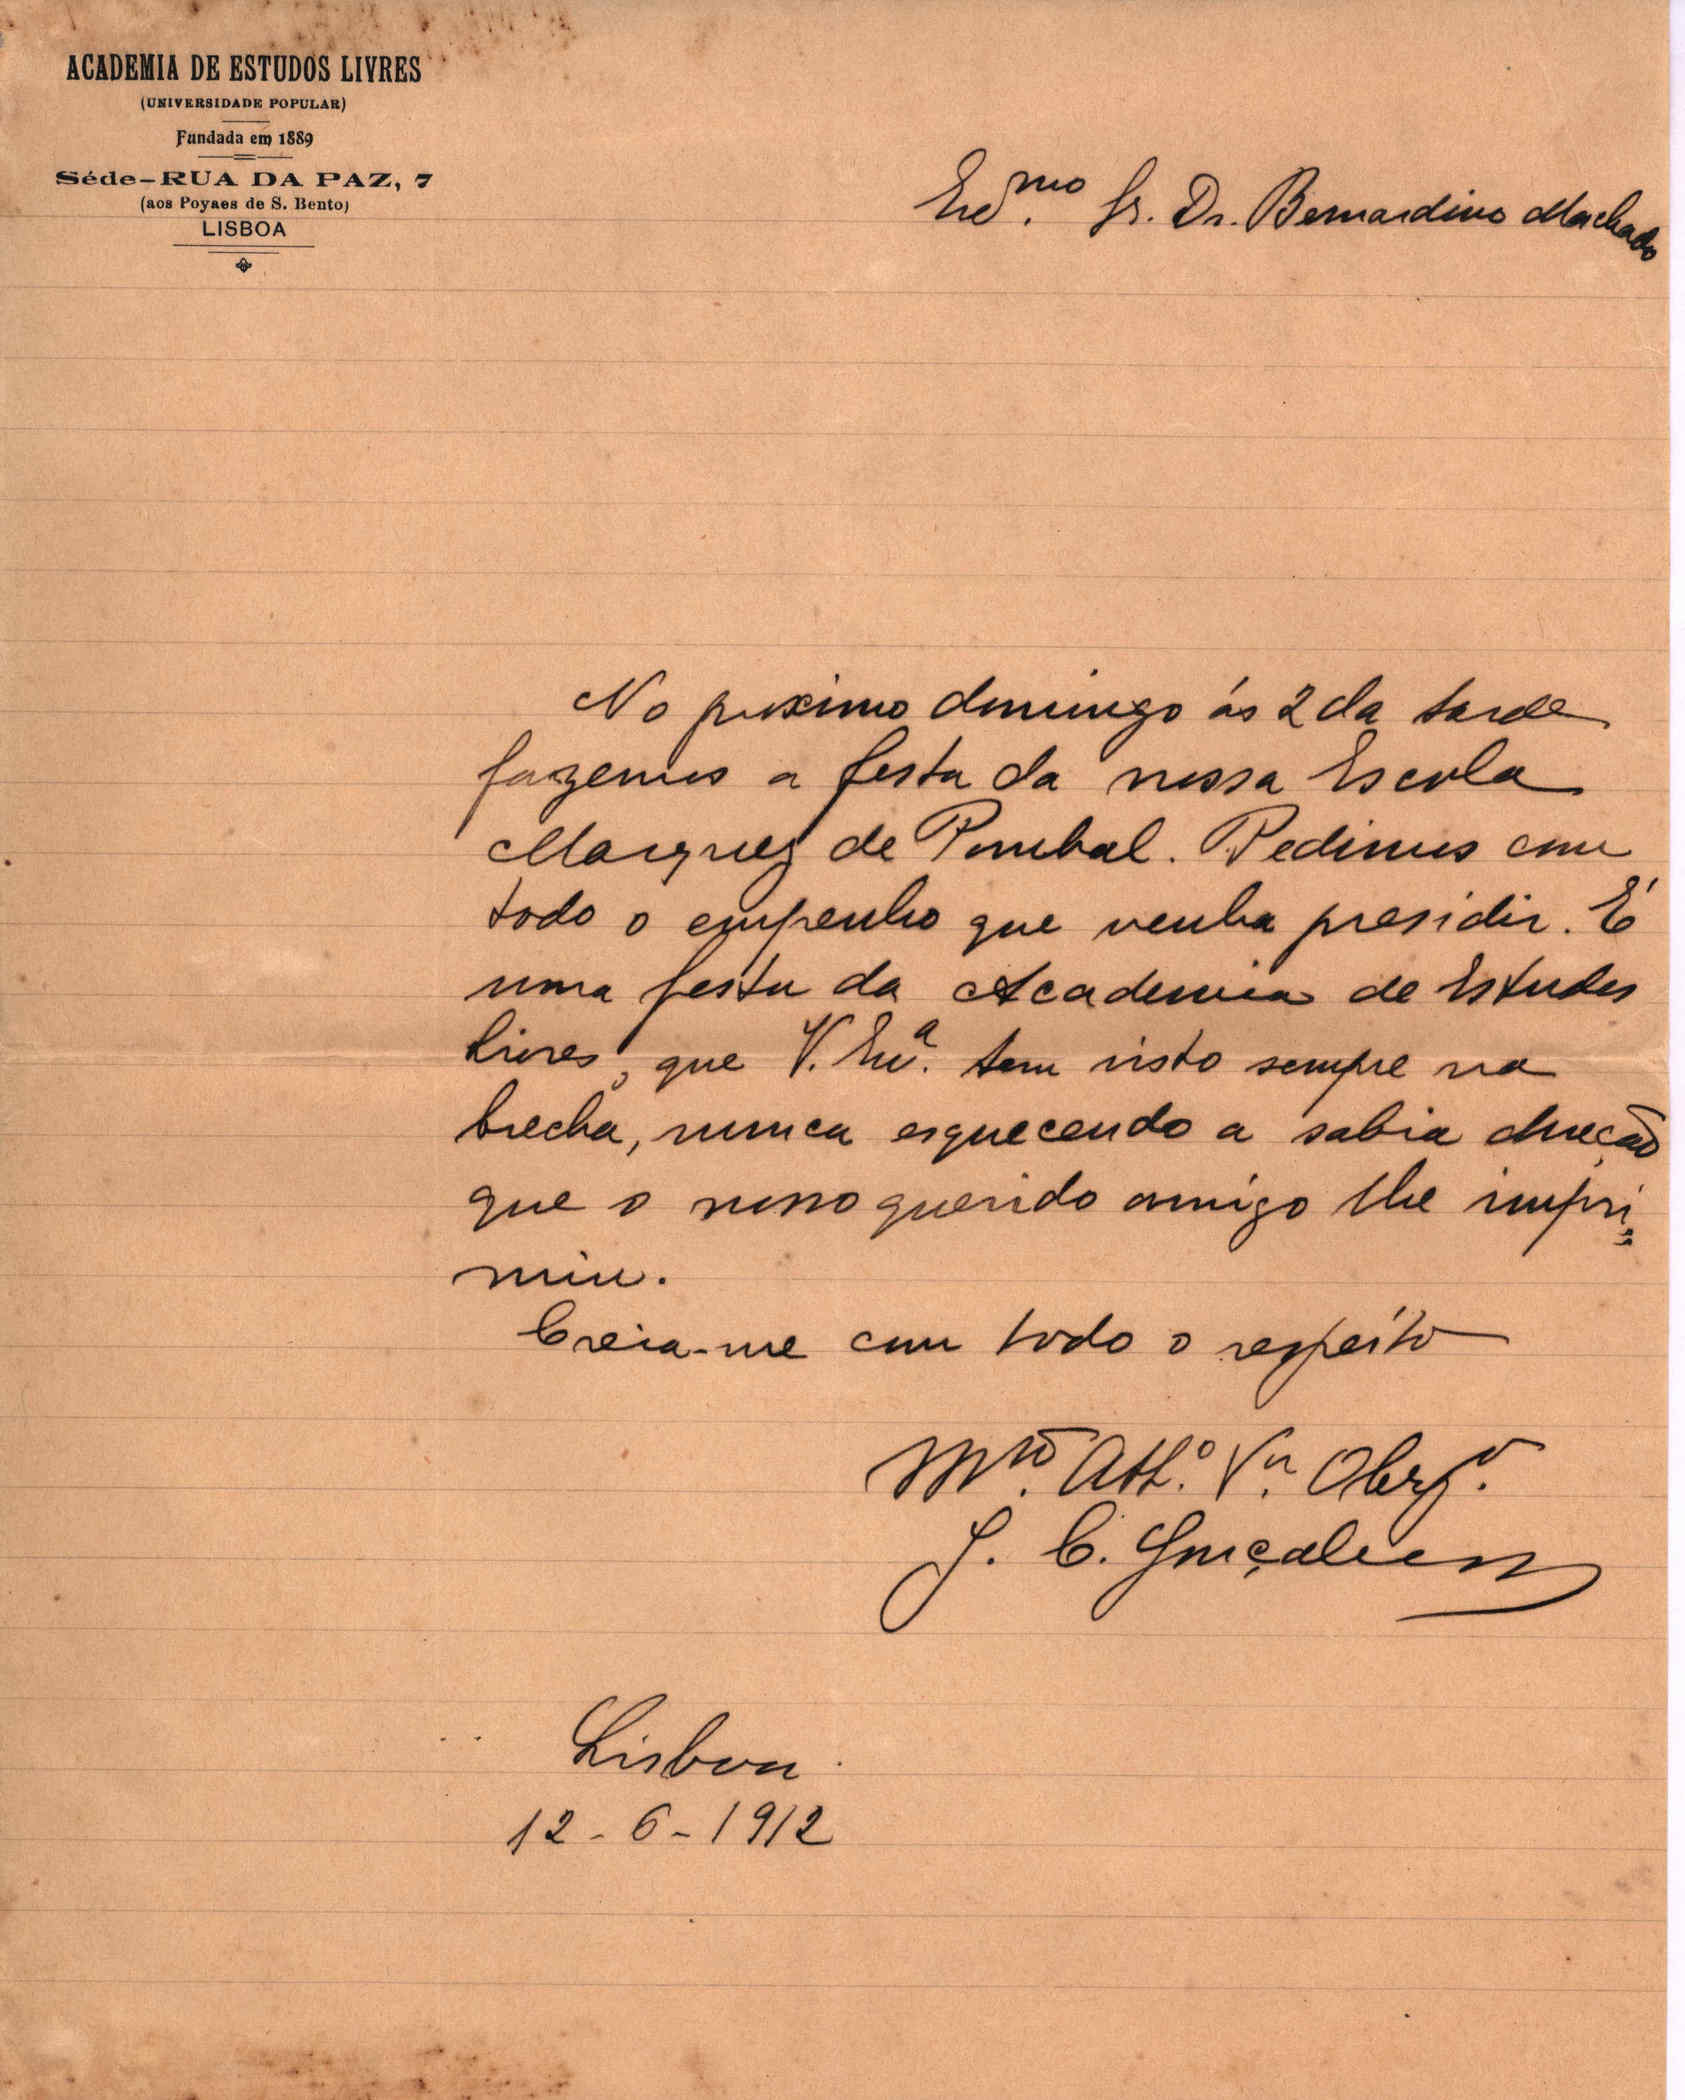 ACADEMIA DE ESTUDOS LIVRES
(UNIVERSIDADE POPULAR)
Fundada em 1889
Séde-RUA DA PAZ, 7
(aos Poyaes de S. Bento)
LISBOA
Exc.mo Sr. Dr. Bernardino Machado
No proximo domingo ás 2 da tarde
fazemos a festa da nossa Escola
Marquez de Pombal. Pedimos com
todo o empenho que venha presidir. É
uma festa da Academia de Estudos
Livres, que V. Exc.a tem visto sempre na
brecha, nunca esquecendo a sabia direcção
que o nosso querido amigo lhe impri=
miu.
Creia-me com todo o respeito
M.to Att.o V.or Obrg.o
J. C. Gonçalves
Lisboa
12-6-1912